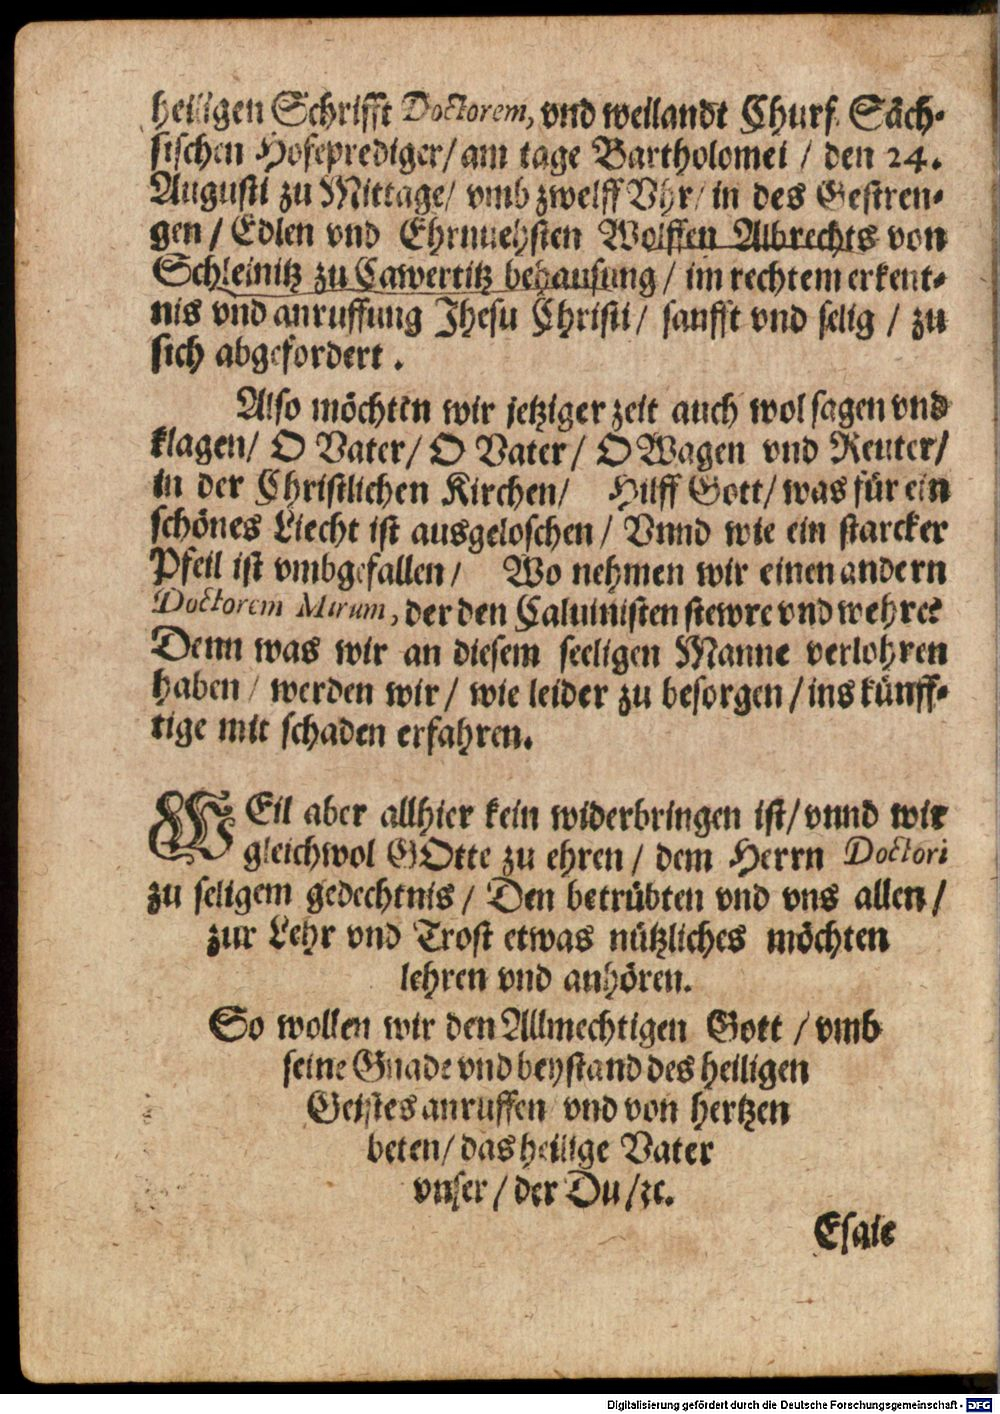 heiligen Schrifft Doctorem, vnd weilandt Churf. Säch-
sischen Hofeprediger / am tage Bartholomei / den 24.
Augusti zu Mittage / vmb zwelff Vhr / in des Gestren-
gen / Edlen vnd Ehrnuehsten Wolffen Albrechts von
Schleinitz zu Cawertitz behausung / im rechtem erkent-
nis vnd anruffung Jhesu Christi / sanfft vnd selig / zu
sich abgefordert.
Also möchten wir jetziger zeit auch wol sagen vnd
klagen / O Vater / O Vater / O Wagen vnd Reuter /
in der Christlichen Kirchen / Hilff Gott / was für ein
schönes Liecht ist ausgeloschen / Vnnd wie ein starcker
Pfeil ist vmbgefallen / Wo nehmen wir einen andern
Doctorem Mirum, der den Caluinisten stewre vnd wehre?
Denn was wir an diesem seeligen Manne verlohren
haben / werden wir / wie leider zu besorgen / ins künff-
tige mit schaden erfahren.
WEil aber allhier kein widerbringen ist / vnnd wir
gleichwol GOtte zu ehren / dem Herrn Doctori
zu seligem gedechtnis / Den betrübten vnd vns allen /
zur Lehr vnd Trost etwas nützliches möchten
lehren vnd anhören.
So wollen wir den Allmechtigen Gott / vmb
seine Gnade vnd beystand des heiligen
Geistes anruffen vnd von hertzen
beten / das heilige Vater
vnser / der Du / ꝛc.
Esaie
Digitalisierung gefördert durch die Deutsche Forschungsgemeinschaft - DFG